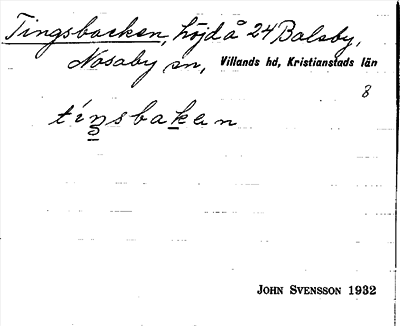 Tingsbacken, höjd å 24 Balsby,
Nosaby sn, Villands hd, Kristianstads län
8
tíŋsbakan
JOHN SVENSSON 1932